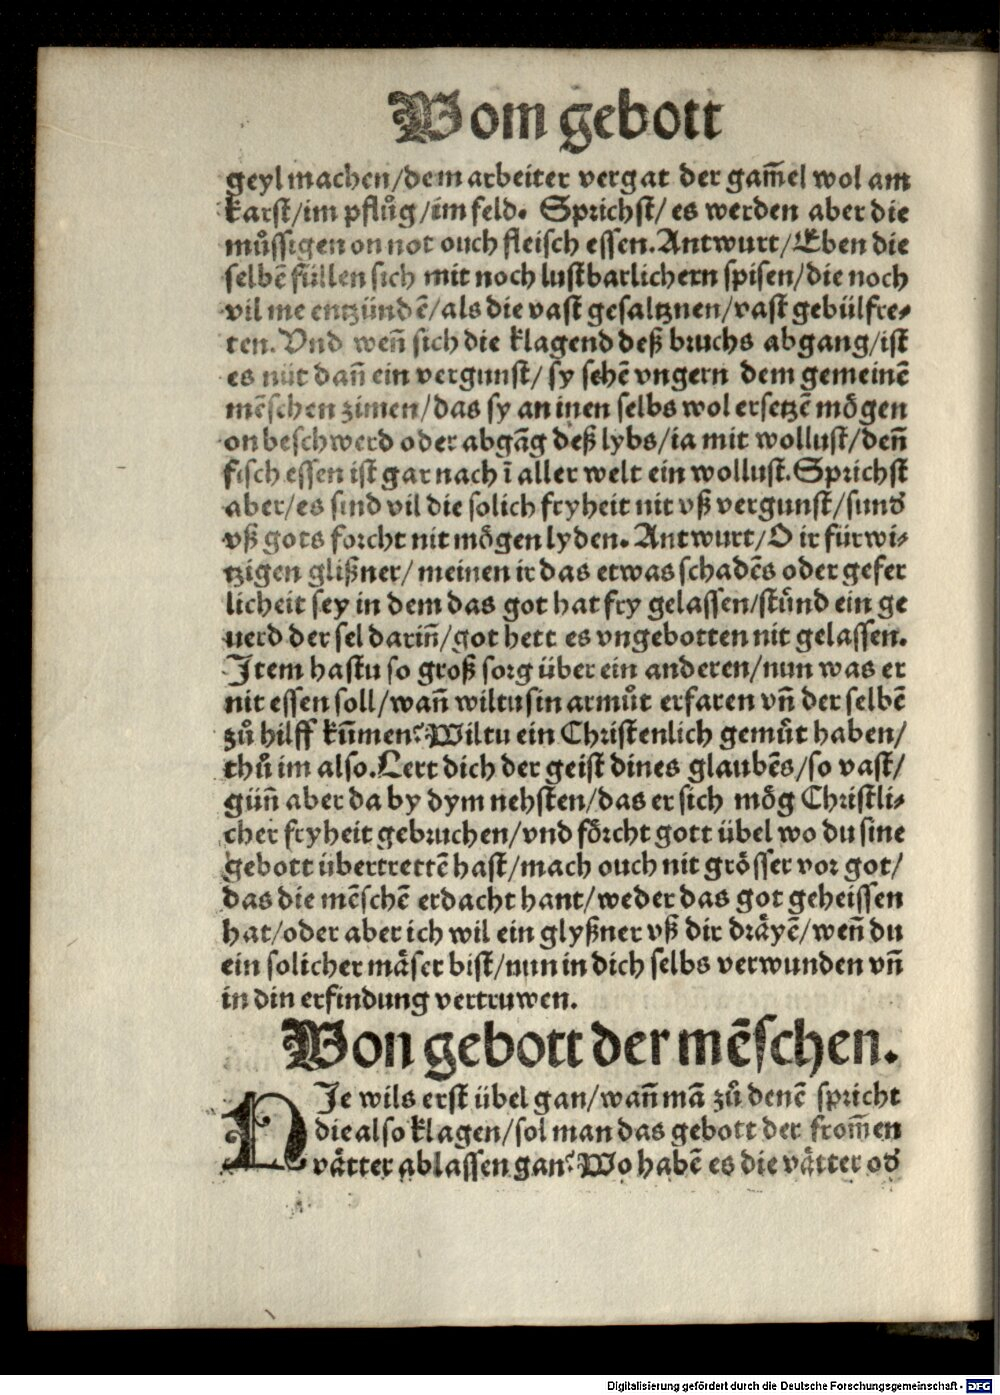 Vom gebott
geyl machen/dem arbeiter vergat der gam̃el wol am
karst/im pflůg/im feld. Sprichst/ es werden aber die
můssigen on not ouch fleisch essen. Antwurt/Eben die
selbē füllen sich mit noch lustbarlichern spisen/die noch
vil me entzündē/als die vast gesaltznen/vast gebülfre⸗
ten. Vnd weñ sich die klagend deß bruchs abgang/ist
es nüt dañ ein vergunst/ sy sehē vngern dem gemeinē
mēschen zimen/das sy an inen selbs wol ersetzē mögen
on beschwerd oder abgāg deß lybs/ia mit wollust/deñ
fisch essen ist gar nach ī aller welt ein wollust. Sprichst
aber/es sind vil die solich fryheit nit vß vergunst/sund
vß gots forcht nit mögen lyden. Antwurt/O ir fürwi⸗
tzigen glißner/ meinen ir das etwas schadēs oder gefer
licheit sey in dem das got hat fry gelassen/stünd ein ge
uerd der sel dariñ/got hett es vngebotten nit gelassen.
Item hastu so groß sorg über ein anderen/nun was er
nit essen soll/wañ wiltu sin armůt erfaren vñ der selbē
zů hilff kum̃en? Wiltu ein Christenlich gemüt haben/
thů im also. Lert dich der geist dines glaubēs/so vast/
güñ aber da by dym nehsten/das er sich mög Christli⸗
cher fryheit gebruchen/vnd förcht gott übel wo du sine
gebott übertrettē hast/mach ouch nit grösser vor got/
das die mēschē erdacht hant/weder das got geheissen
hat/oder aber ich wil ein glyßner vß dir dräyē/weñ du
ein solicher mäser bist/nun in dich selbs verwunden vñ
in din erfindung vertruwen.
Von gebott der mēschen.
HIe wils erst übel gan/wañ mā zů denē spricht
die also klagen/sol man das gebott der from̃en
vätter ablassen gan? Wo habē es die vätter od
Digitalisierung gefördert durch die Deutsche Forschungsgemeinschaft - DFG